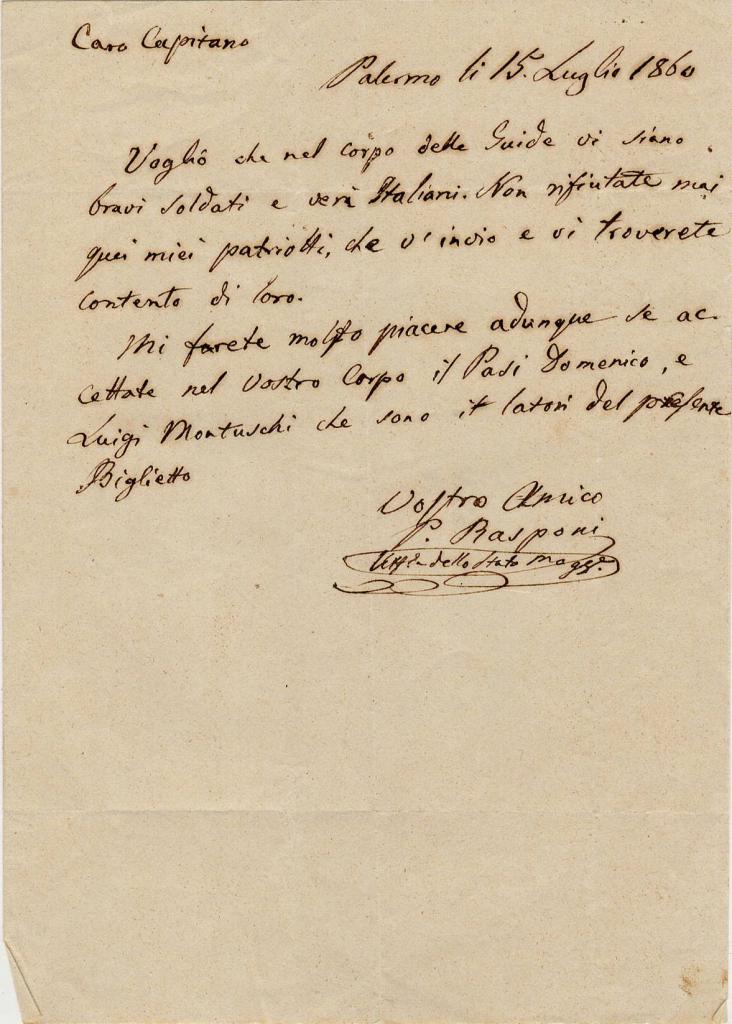 Caro Capitano
Palermo li 15. Luglio 1860
Voglio che nel corpo delle Guide vi siano
bravi soldati e veri Italiani. Non rifiutate mai
quei miei patriotti, che v'invio e vi troverete
contento di loro.
Mi farete molto piacere adunque se ac-
cettate nel vostro Corpo il Pasi Domenico, e
Luigi Montuschi che sono i latori del presente
Biglietto
Vostro Amico
P. Rasponi
Uff.le dello Stato Magg.e